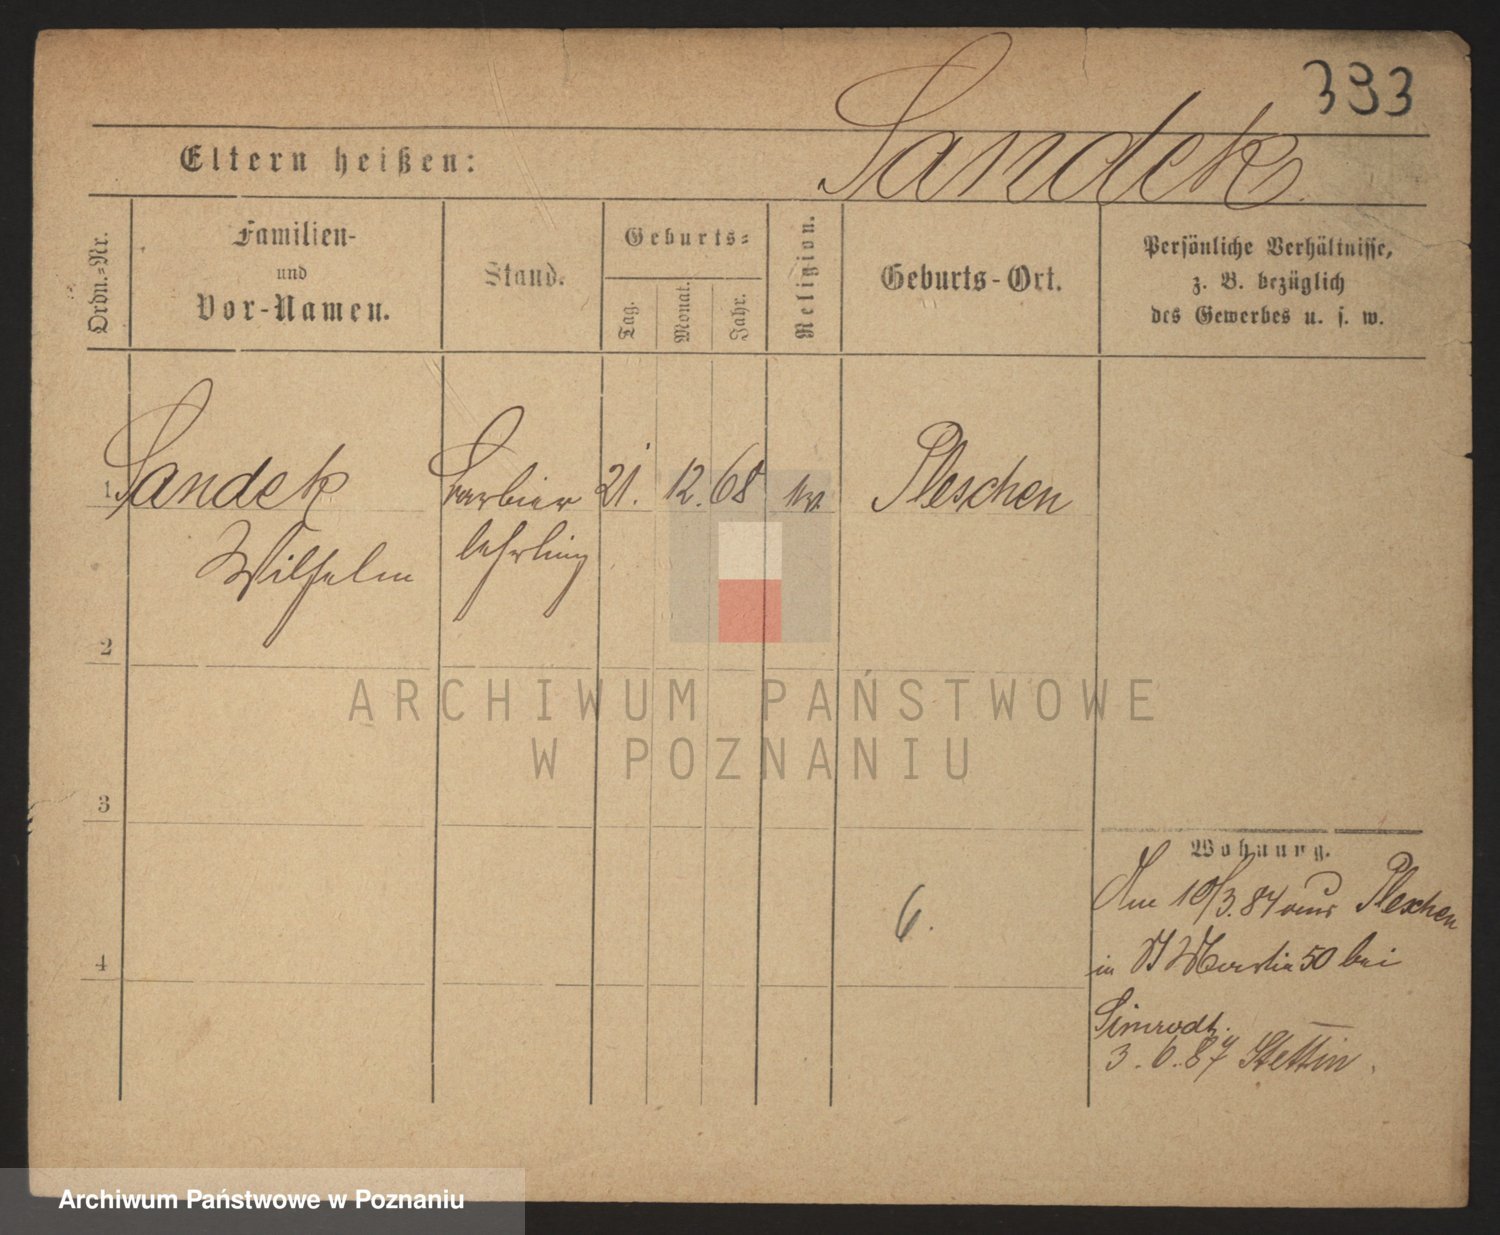 393
Sandek
Eltern heißen:
Ordn.=Nr.
Familien-
und
Vor-Namen.
Stand.
Geburts=
Tag.
Monat.
Jahr.
Religion.
Geburts-Ort.
Persönliche Verhältnisse,
z. B. bezüglich
des Gewerbes u. s. w.
1 Sandek Barbier 21. 12. 68 Pleschen
Wilhelm lehrling
2
ARCHIWUM PAŃSTWOWE
W POZNANIU
3
Wohnung.
Am 10/3. 84 aus Pleschen
6.
in 50 bei
4
Simrodt.
3. 6. 87 Stettin.
Archiwum Państwowe w Poznaniu